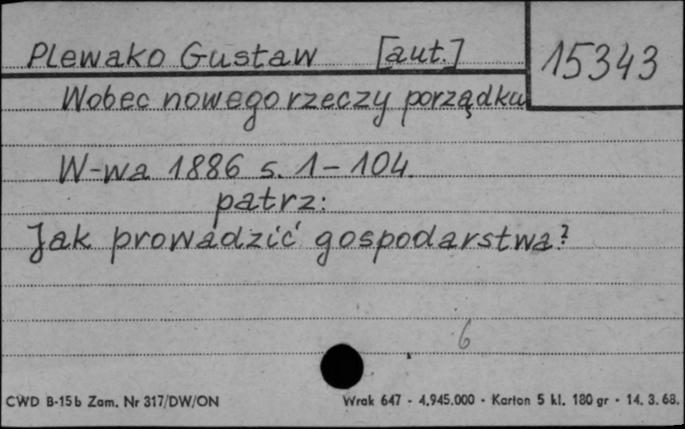 Plewako Gustaw [aut.]
15343
Wobec nowego rzeczy porządku
W-wa 1886 s. 1-104.
patrz:
Jak prowadzić gospodarstwa?
6
CWD B-15b Zam. Nr 317/DW/ON Wrak 647 - 4.945.000 - Karton 5 kl. 180 gr - 14. 3. 68.